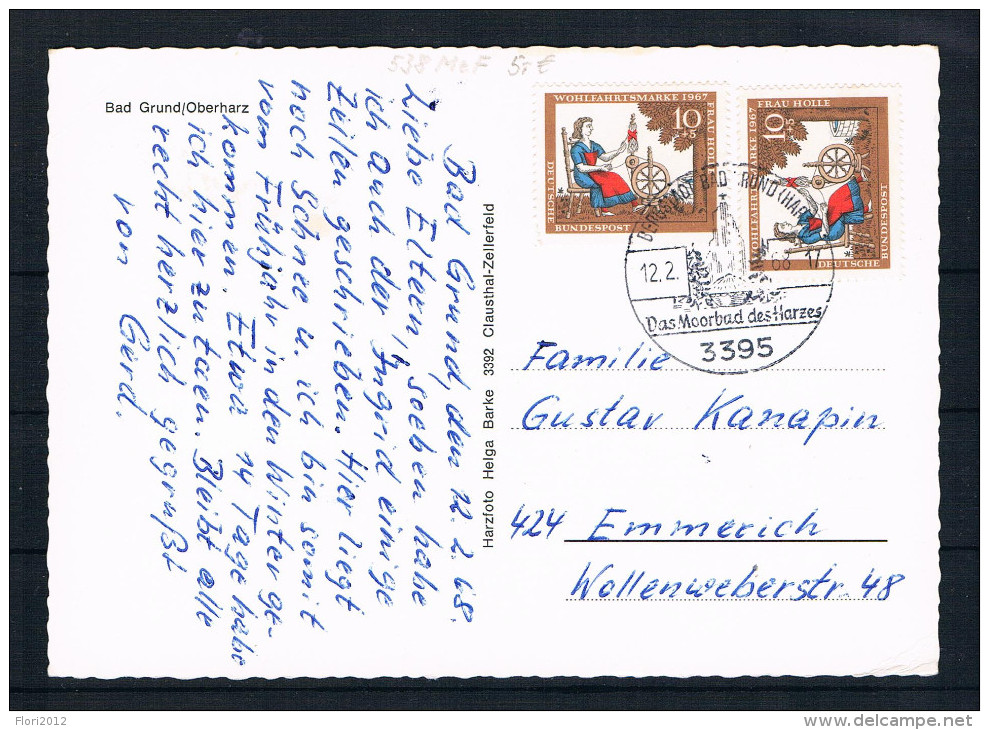 538 MeF 5,- €
Bad Grund/Oberharz
Bad Grund, den 12.2.68.
Liebe Eltern, soeben habe
ich auch der Ingrid einige
Zeilen geschrieben. Hier liegt
noch Schnee u. ich bin somit
vom Frühjahr in den Winter ge-
kommen. Etwa 14 Tage habe
ich hier zu tuen. Bleibt alle
recht herzlich gegrüßt
von Gerd.
Harzfoto Helga Barke 3392 Clausthal-Zellerfeld
WOHLFAHRTSMARKE 1967
10
+5
FRAU HOLLE
DEUTSCHE
BUNDESPOST
WOHLFAHRTSMARKE 1967
FRAU HOLLE
10
+5
DEUTSCHE
BUNDESPOST
BAD GRUND (HARZ)
12.2. 68 - 17
Das Moorbad des Harzes
3395
Familie
Gustav Kanapin
424 Emmerich
Wollenweberstr. 48
Flori2012
www.delcampe.net